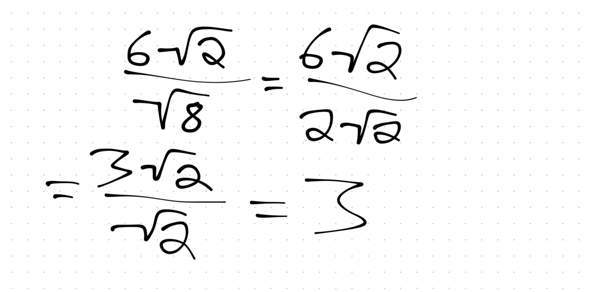 6√2/√8 = 6√2/2√2
= 3√2/√2 = 3